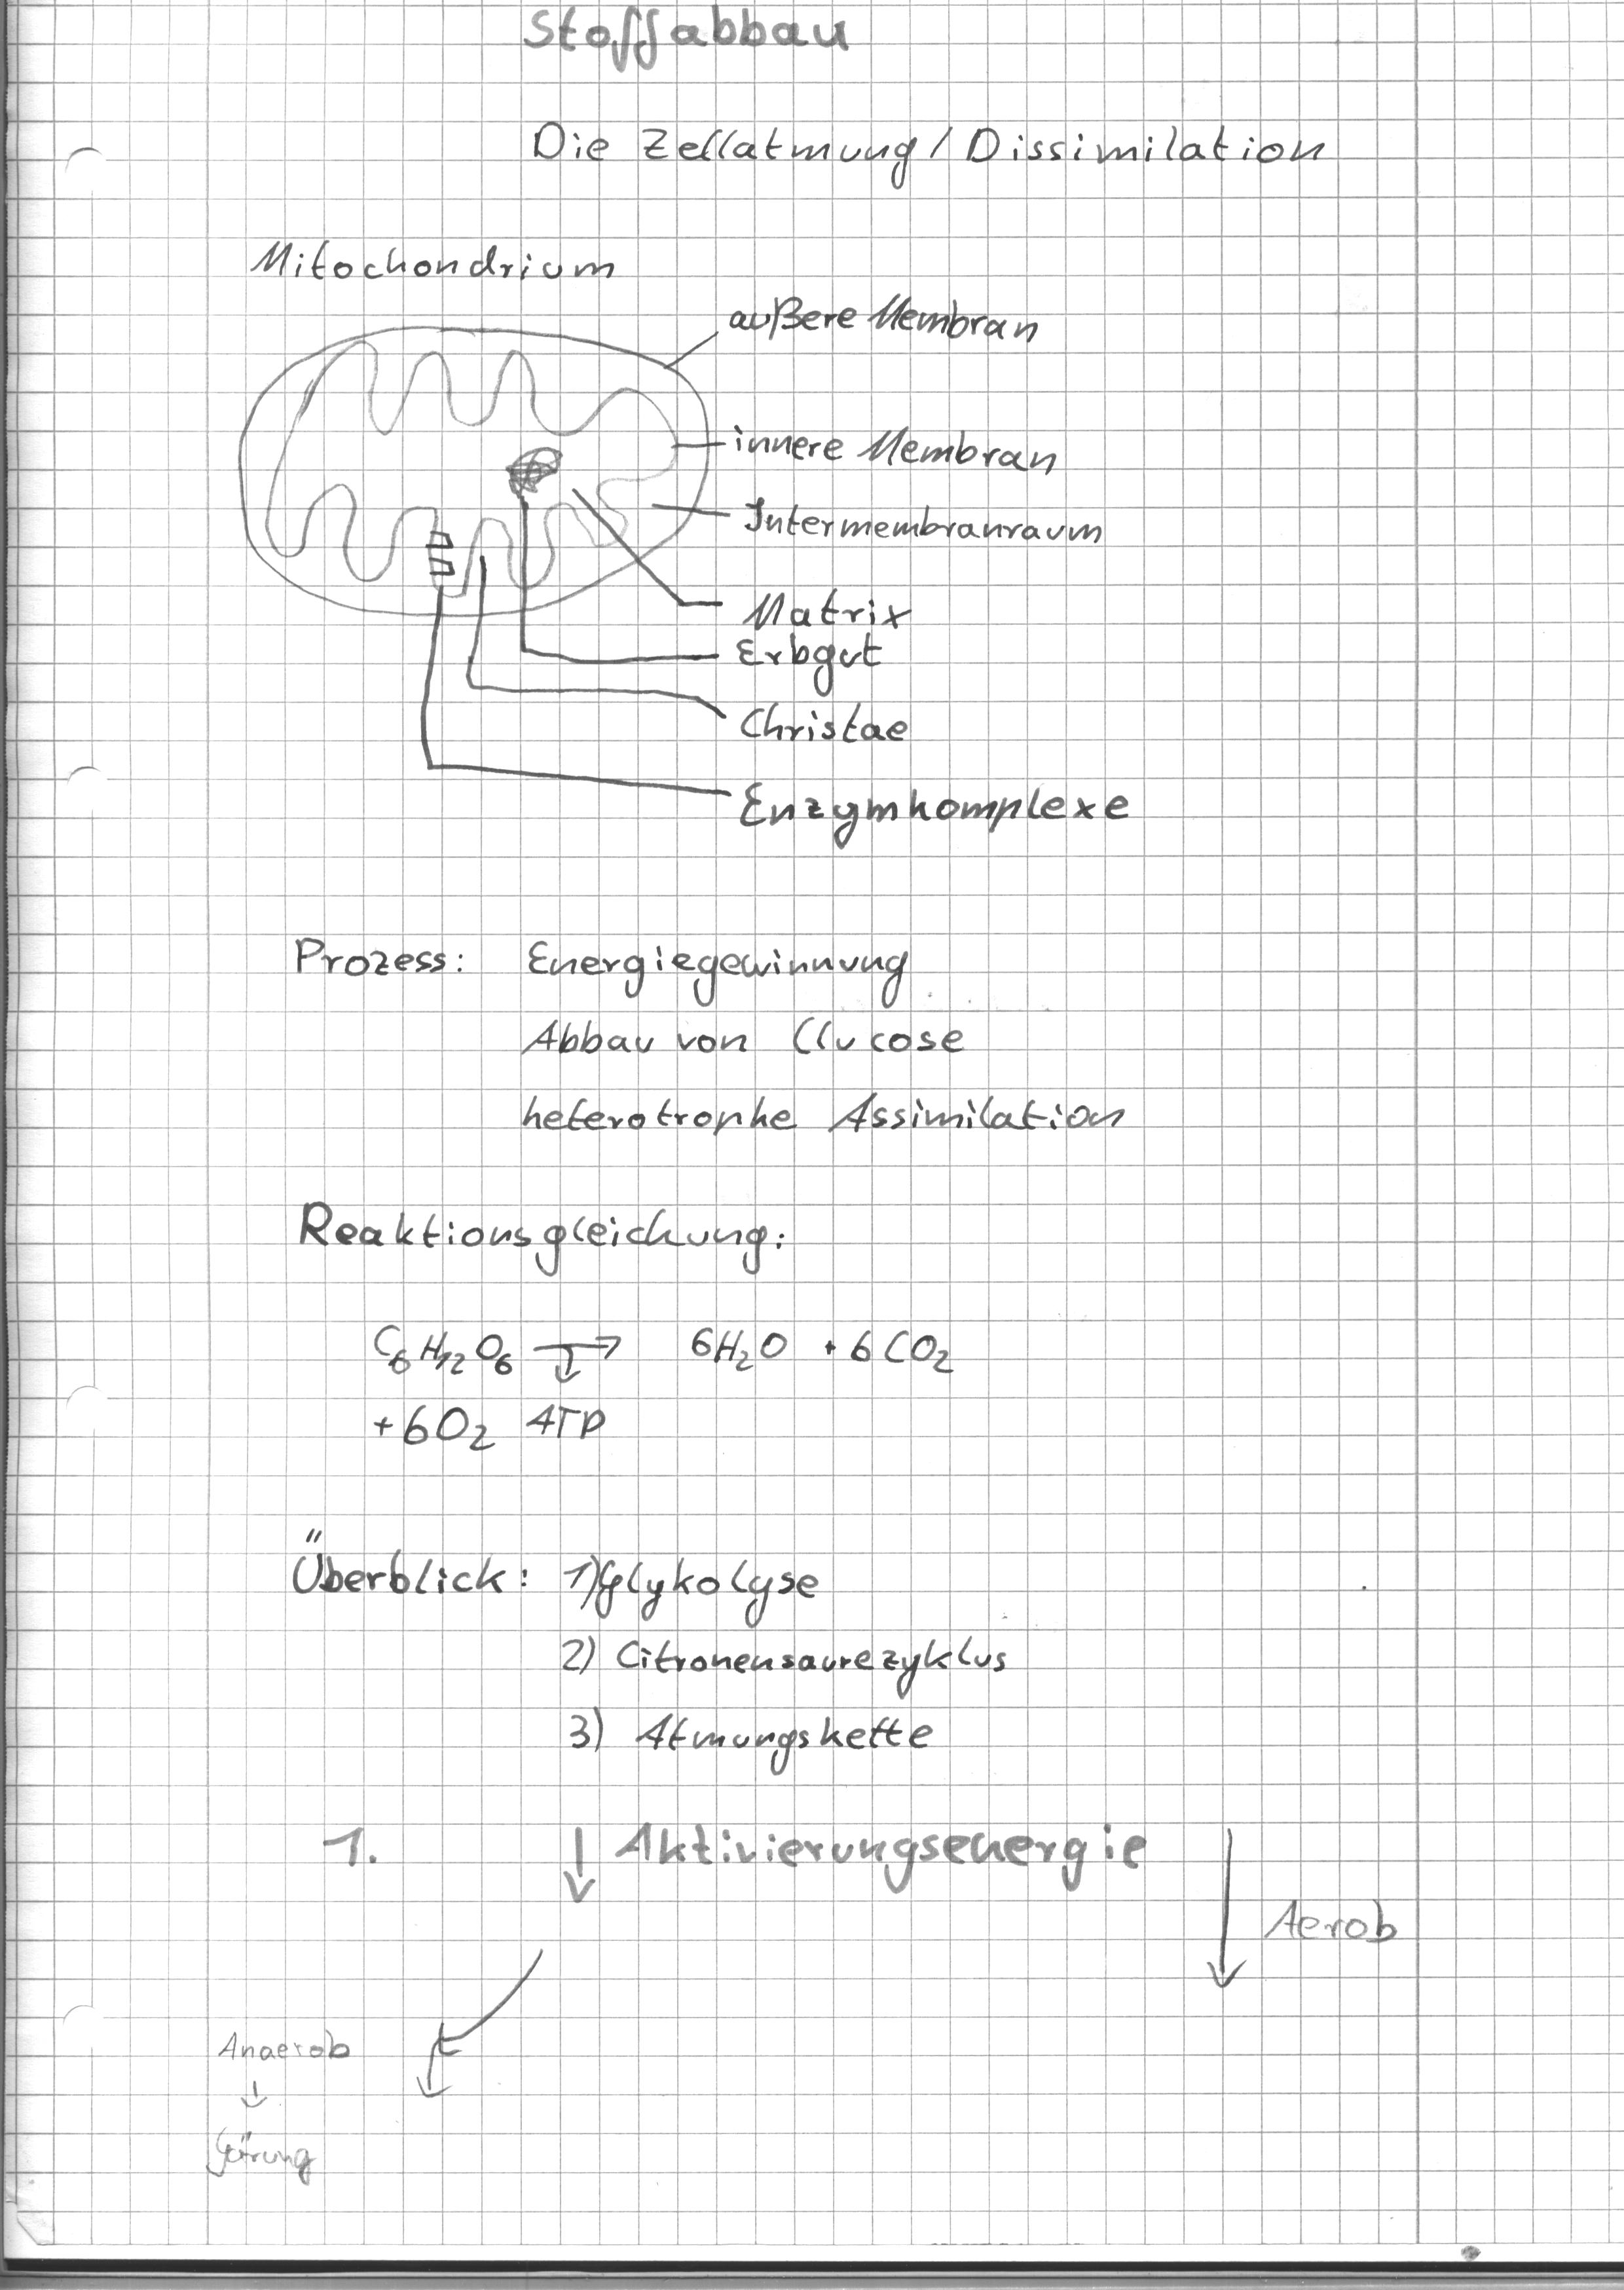 Stoffabbau
Die Zellatmung / Dissimilation
Mitochondrium
außere Membran
innere Membran
Intermembranraum
Matrix
Erbgut
Christae
Enzymkomplexe
Prozess: Energiegewinnung
Abbau von Glucose
heterotrophe Assimilation
Reaktionsgleichung:
C₆H₁₂O₆ → 6H₂O + 6CO₂
+6O₂ ATP
Überblick: 1) Glykolyse
2) Citronensaurezyklus
3) Atmungskette
1. ↓ Aktivierungsenergie
Aerob
Anaerob
↓
Gärung